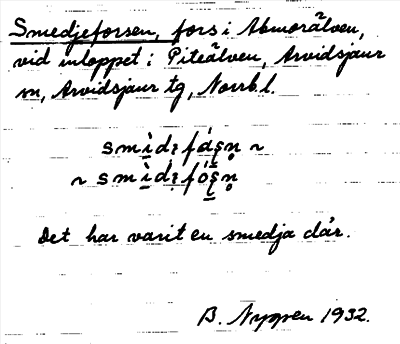 Smedjeforsen, fors i Abmorälven,
vid inloppet i Piteälven, Arvidsjaur
sn, Arvidsjaur tg, Norrb. l.
smìdɂfáʂn̥ ~
~ smìdɂfóʂn̥
Det har varit en smedja där.
B. Nygren 1932.